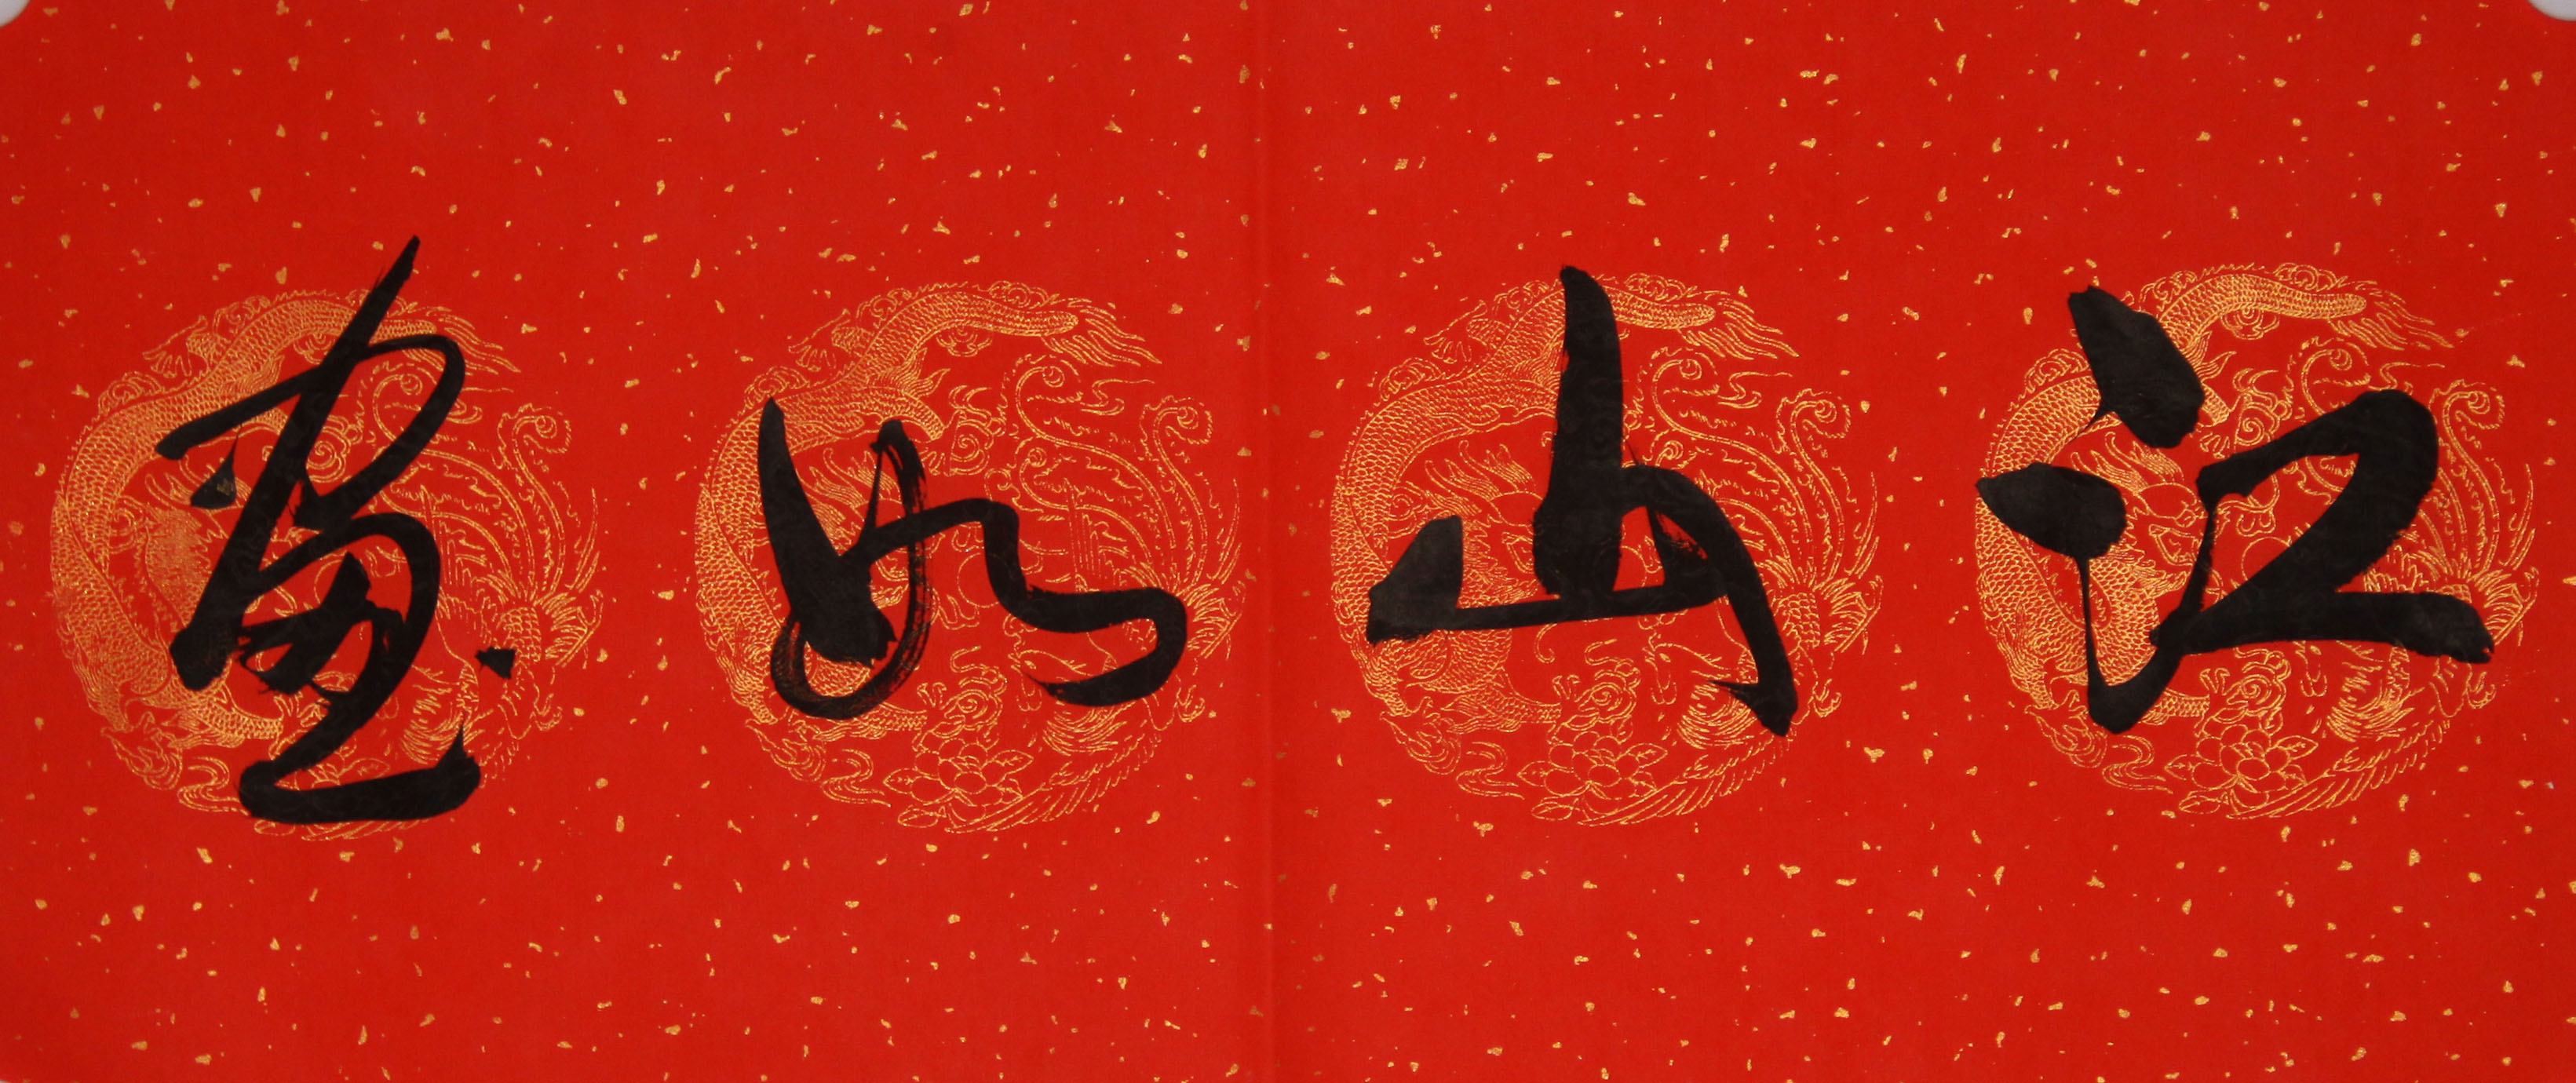 江山如画